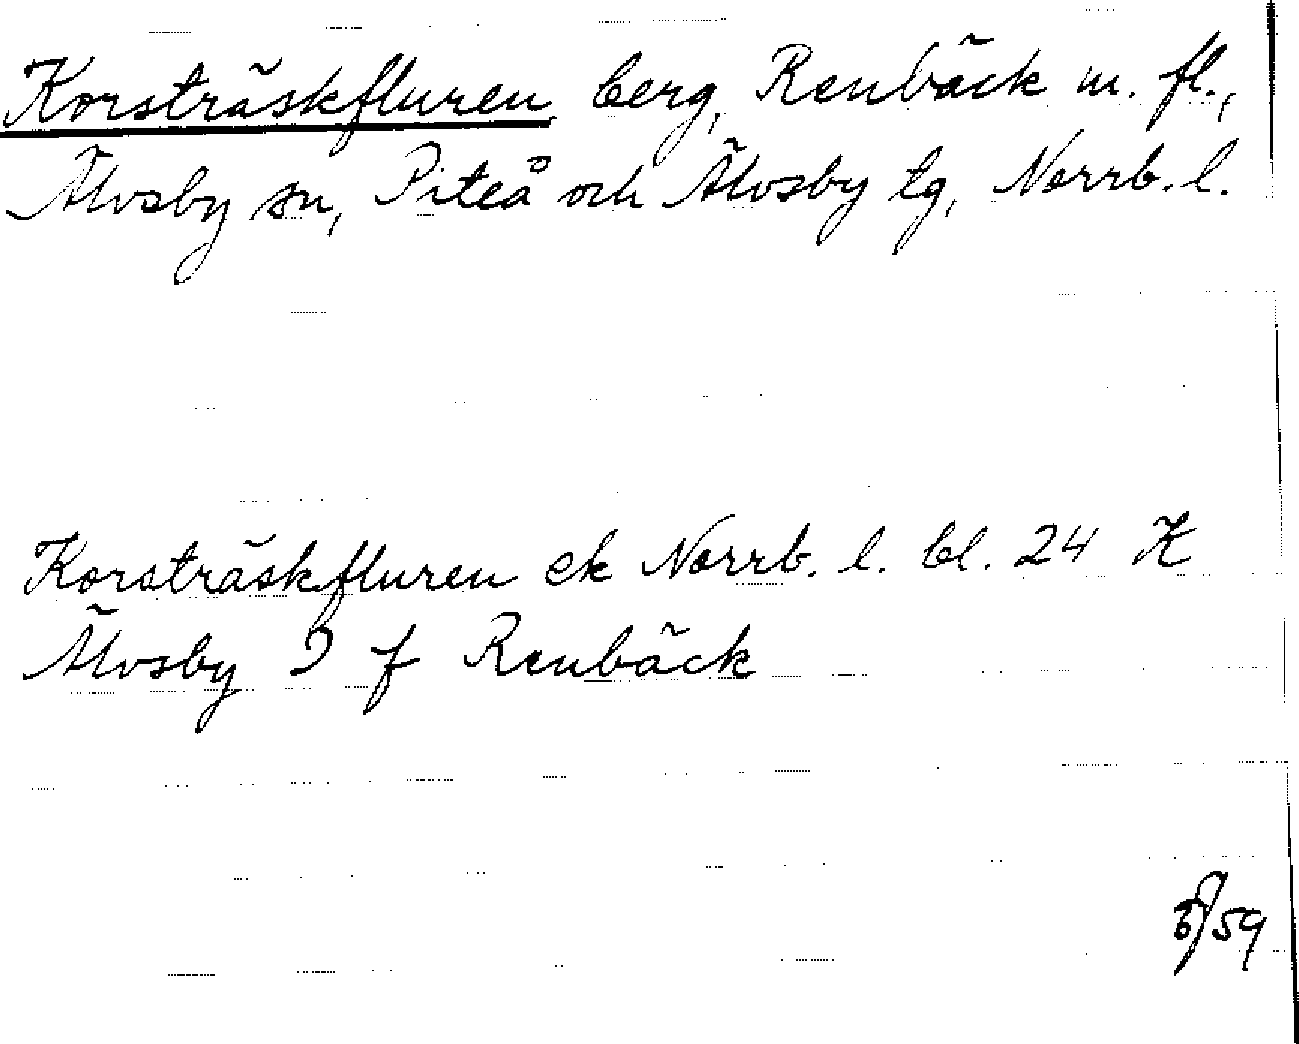 Korsträskfluren, berg, Renbäck m. fl.,
Älvsby sn, Piteå och Älvsby tg, Norrb. l.
Korsträskfluren ek Norrb. l. bl. 24 K
Älvsby 9 f Renbäck
/59